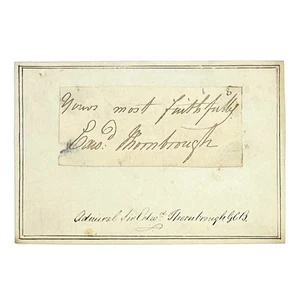 Yours most faithfully
Edwd. Thornbrough
Admiral Sir Edwd. Thornbrough GCB.